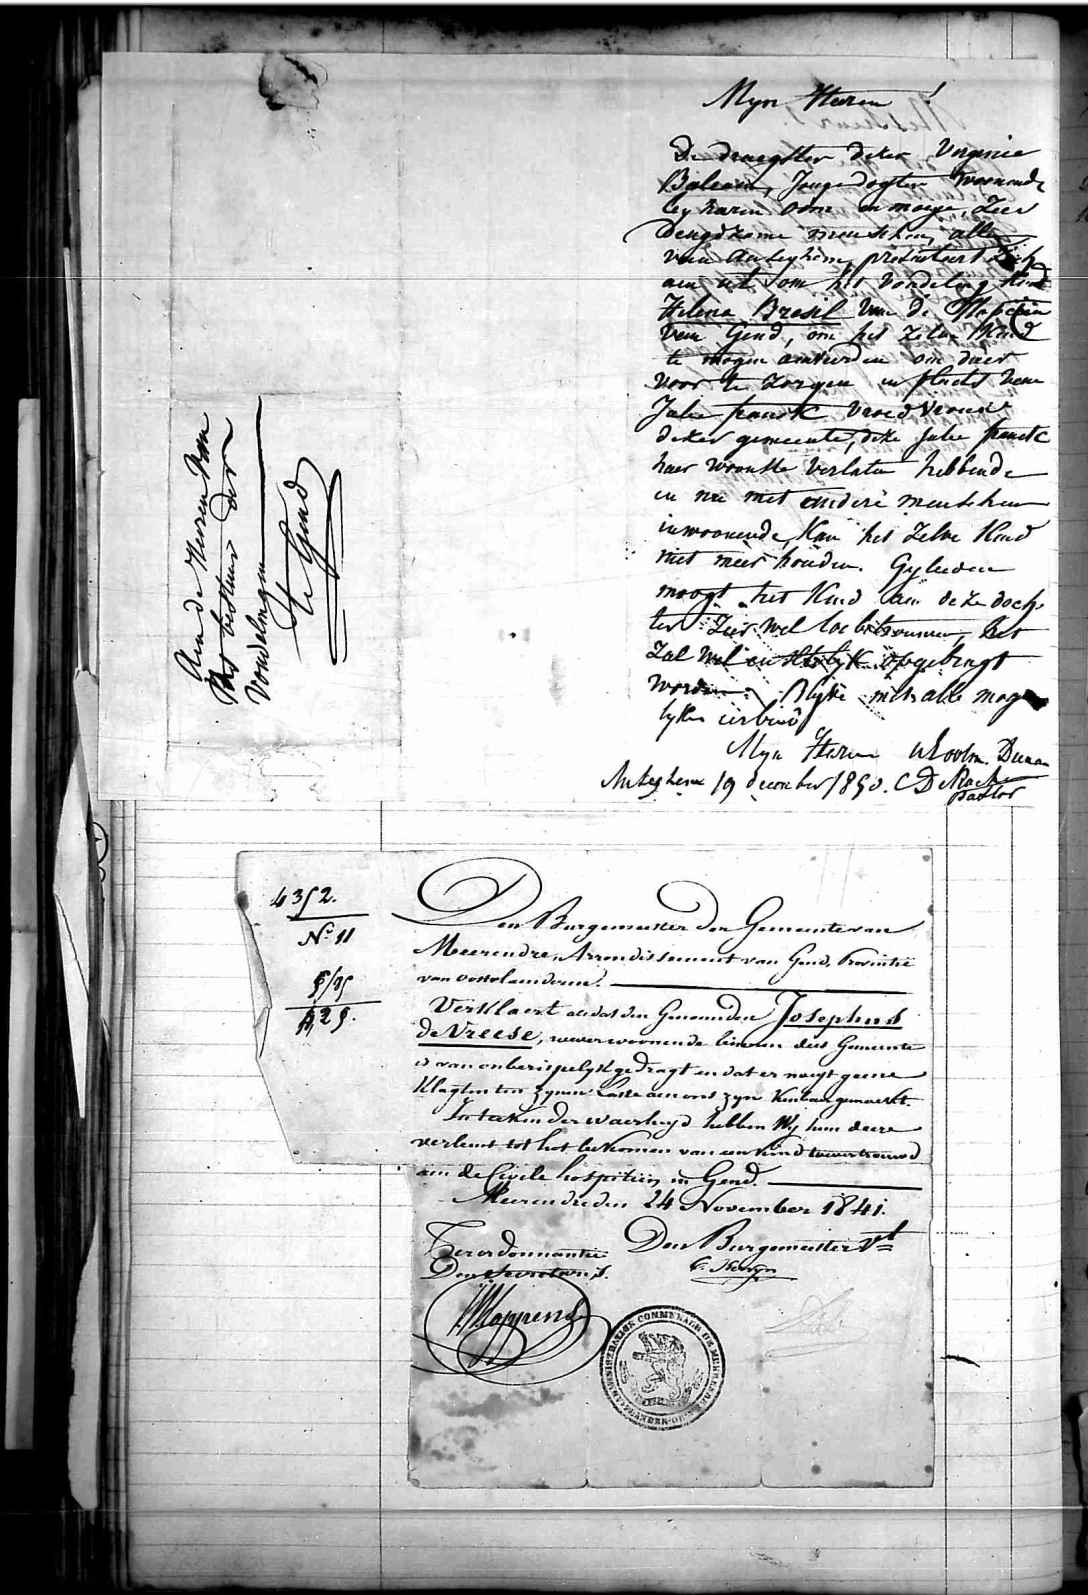 Myn Heeren!
De draegster dezer, Virginie
Baleain, Jonge dogter woonende
by haren oom en moeye, zeer
deugdzame menschen, alle
van Anseghem, presenteert zich
aen UE om het vondeling kind
Helena Bresil van de
van Gend, om het zelve Kind
te mogen aenverden om daer
voor te zorgen in plaets van
Julie franck vroedvrouw
dezer gemeente, deze Julie franck
haer woonste verlaten hebbende
en nu met andere menschen
inwoonende, kan het zelve Kind
niet meer houden. Gylieden
moogt het Kind aen deze doch-
ter zeer wel toebetrouwen, het
zal wel en opgebragt
worden. Blyve met alle moge-
lyken eerbied
Myn Heeren uE ootm. Dienaer
Anseghem 19 december 1850. C De
Pastor
Aen de Heeren van
het bestuer der
Vondelingen
Te Gend
4352.
N.º 11
Den Burgemeester der Gemeente van
Meerendre, Arrondissement van Gend, Provintie
van oostvlaenderen.
Verklaert als dat den Genoemden Josephus
de Vreese, wever woonende binnen dees Gemeente
is van onberispelyk gedragt en dat er nooyt geene
Klagten ten zynen Laste aen ons zyn Kenbaer gemaekt.
In teeken der waerheyd hebben Wy hem deeze
verleent tot het bekomen van een kind toevertrouwd
aen de Civile hospitien in Gend.
Meerendre den 24 November 1841.
Ter ordonnantie Den Burgemeester
Den Secretaris.